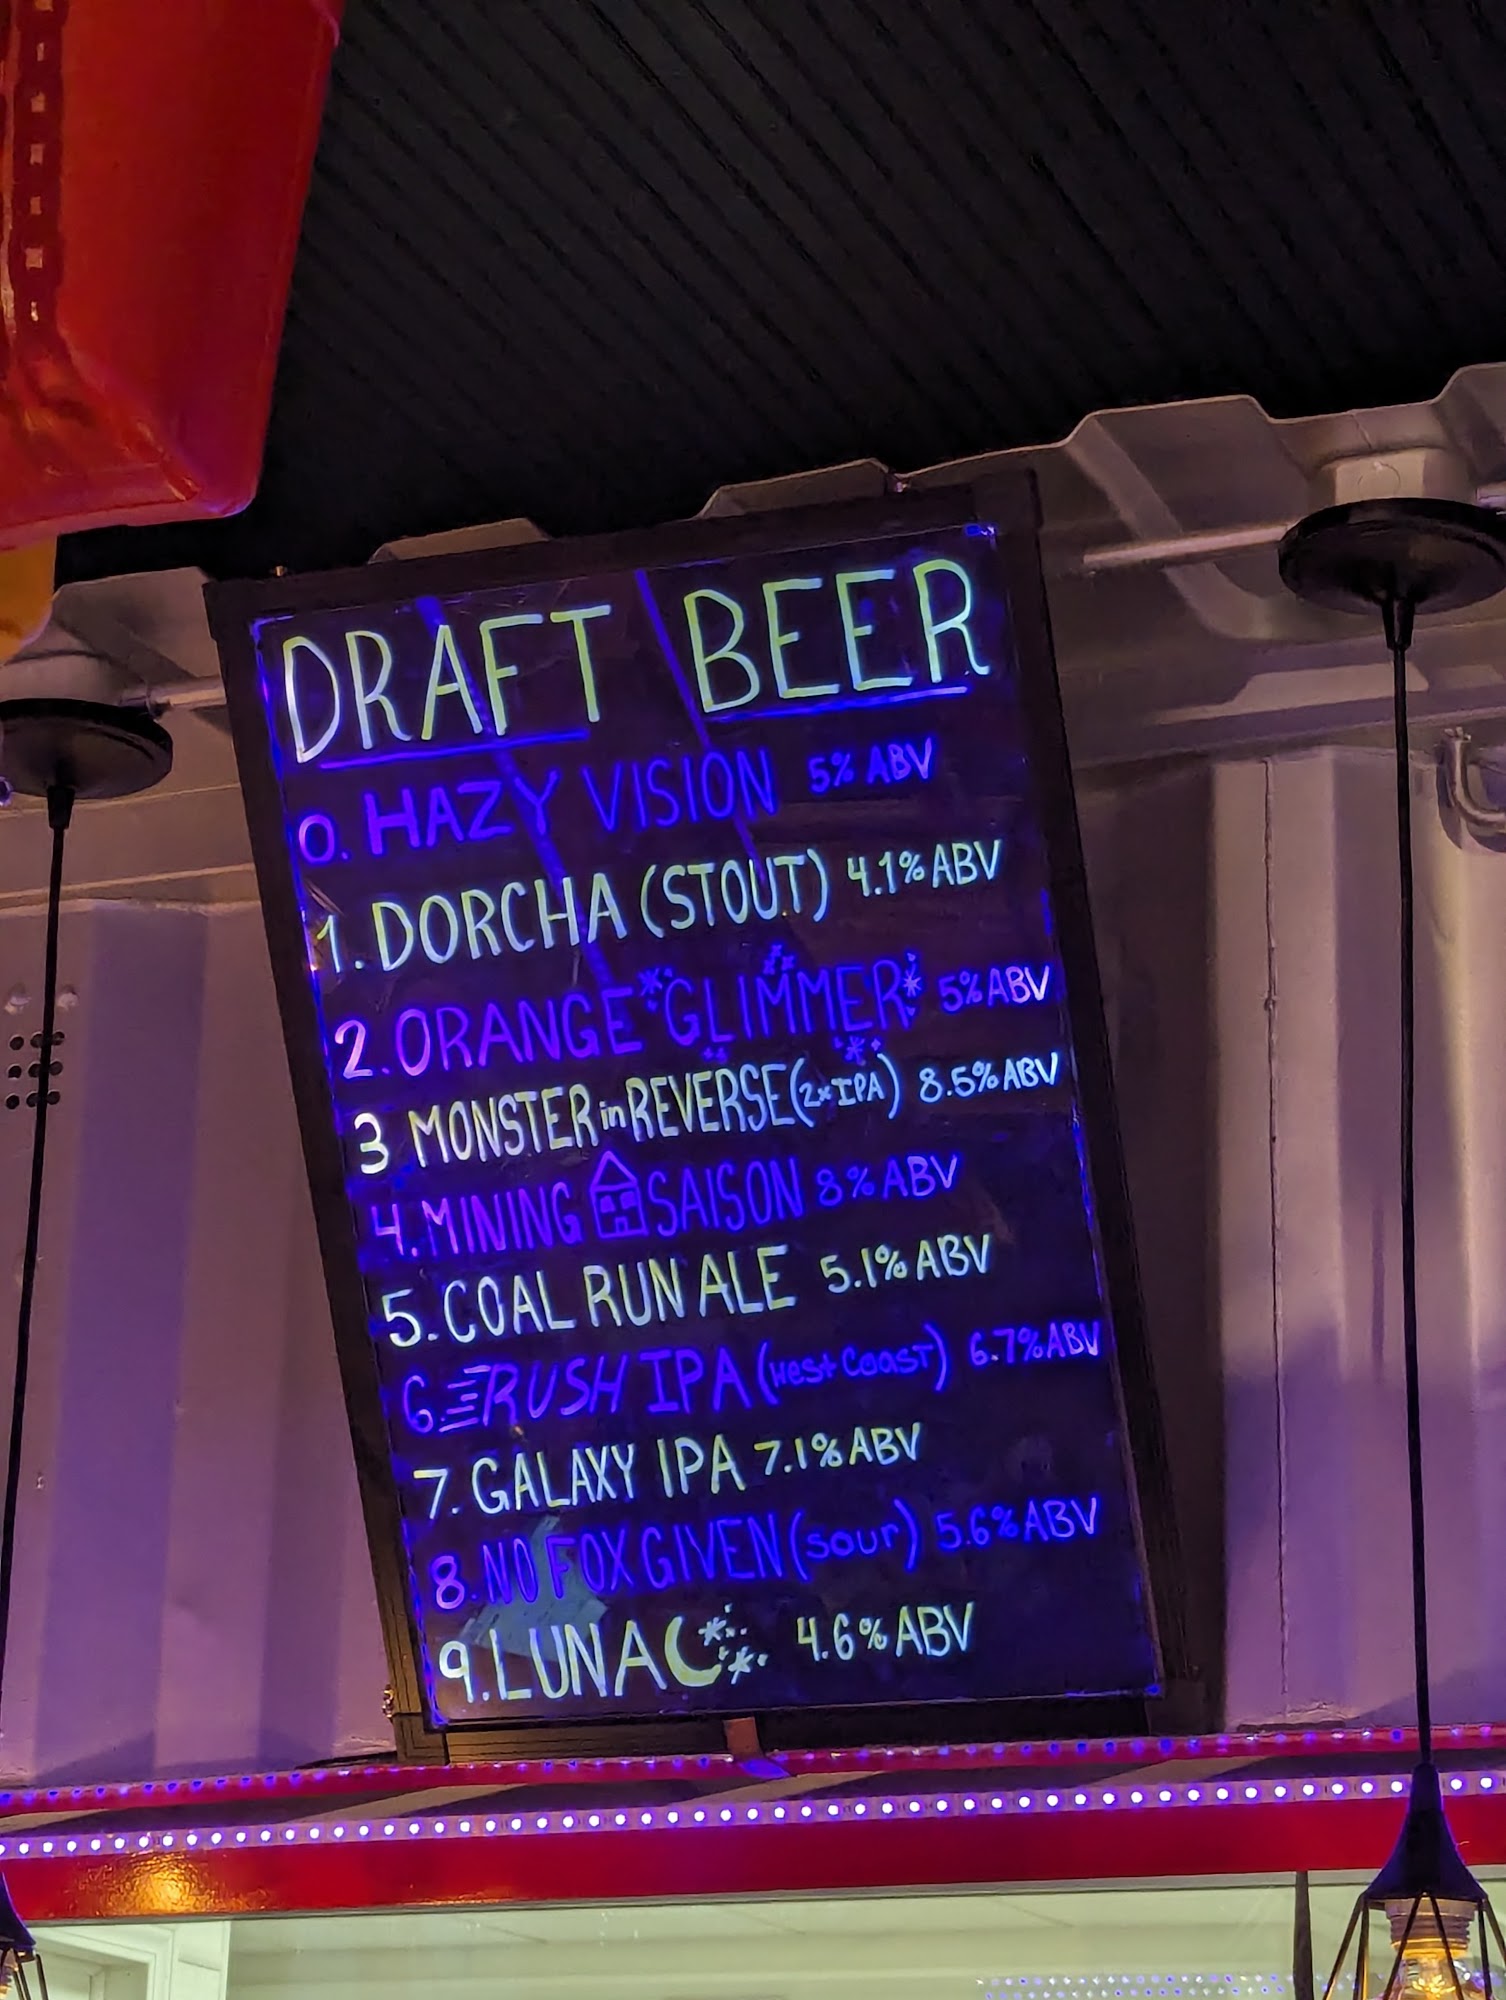 DRAFT BEER
0. HAZY VISION 5% ABV
1. DORCHA (STOUT) 4.1% ABV
2. ORANGE GLIMMER 5% ABV
3 MONSTER in REVERSE (2x IPA) 8.5% ABV
4. MINING SAISON 8% ABV
5. COAL RUN ALE 5.1% ABV
6. RUSH IPA (West Coast) 6.7% ABV
7. GALAXY IPA 7.1% ABV
8. NO FOX GIVEN (sour) 5.6% ABV
9. LUNA 4.6% ABV